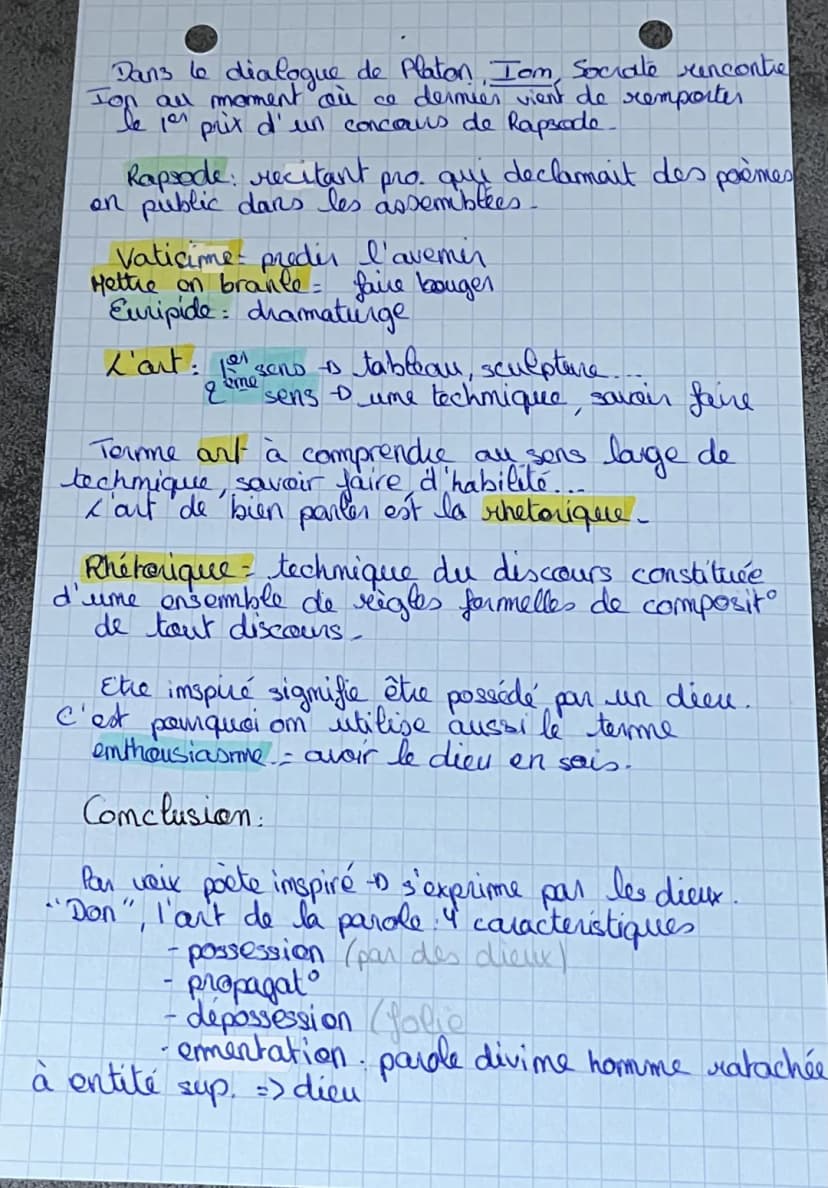 Dans le dialogue de Platon, Ion, Socrate rencontre
Ion au moment où ce dernier vient de remporter
le 1er prix d'un concours de Rapsode.
Rapsode : recitant pro. qui declamait des poèmes
en public dans les assemblées.
Vaticine = predir l'avenir
Mettre en branle = faire bouger
Euripide : dramaturge
L'art : 1er sens → tableau, sculpture...
2ème sens → une technique, savoir faire
Terme art à comprendre au sens large de
technique, savoir faire, d'habilité...
L'art de bien parler est la rhetorique.
Rhétorique = technique du discours constituée
d'une ensemble de règles formelles de composit°
de tout discours.
Etre inspiré signifie être possédé par un dieu.
C'est pourquoi on utilise aussi le terme
enthousiasme. = avoir le dieu en sois.
Conclusion :
Par voix poète inspiré → s'exprime par les dieux.
"Don", l'art de la parole : 4 caractéristiques
- possession (par des dieux)
- propagat°
- dépossession (folie
- ermentation. parole divine homme ratachée
à entité sup. => dieu